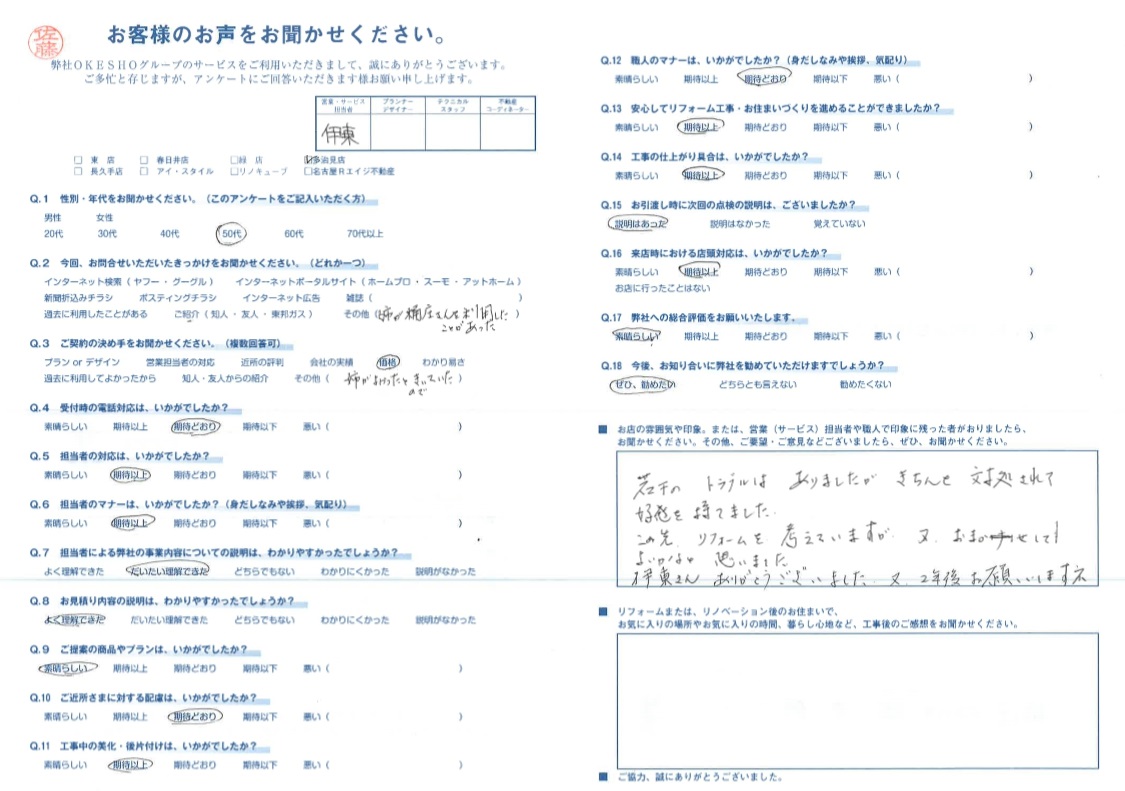 佐藤
お客様のお声をお聞かせください。
弊社ＯＫＥＳＨＯグループのサービスをご利用いただきまして、誠にありがとうございます。
ご多忙と存じますが、アンケートにご回答いただきます様お願い申し上げます。
営業・サービス担当者 プランナーデザイナー テクニカルスタッフ 不動産コーディネーター
伊東
□ 東 店 □ 春日井店 □緑 店 ☑多治見店
□ 長久手店 □ アイ・スタイル □リノキューブ □名古屋Ｒエイジ不動産
Q.1 性別・年代をお聞かせください。（このアンケートをご記入いただく方）
男性 女性
20代 30代 40代 50代 60代 70代以上
Q.2 今回、お問合せいただいたきっかけをお聞かせください。（どれか一つ）
インターネット検索（ ヤフー ・ グーグル ） インターネットポータルサイト（ ホームプロ ・ スーモ ・ アットホーム ）
新聞折込みチラシ ポスティングチラシ インターネット広告 雑誌（ ）
過去に利用したことがある ご紹介（ 知人 ・ 友人 ・ 東邦ガス ） その他（姉が桶庄さんを利用した
ことがあった
Q.3 ご契約の決め手をお聞かせください。（複数回答可）
プラン or デザイン 営業担当者の対応 近所の評判 会社の実績 価格 わかり易さ
過去に利用してよかったから 知人・友人からの紹介 その他（ 姉がよかったときいていた ）
ので
Q.4 受付時の電話対応は、いかがでしたか？
素晴らしい 期待以上 期待どおり 期待以下 悪い（ ）
Q.5 担当者の対応は、いかがでしたか？
素晴らしい 期待以上 期待どおり 期待以下 悪い（ ）
Q.6 担当者のマナーは、いかがでしたか？（身だしなみや挨拶、気配り）
素晴らしい 期待以上 期待どおり 期待以下 悪い（ ）
Q.7 担当者による弊社の事業内容についての説明は、わかりやすかったでしょうか？
よく理解できた だいたい理解できた どちらでもない わかりにくかった 説明がなかった
Q.8 お見積り内容の説明は、わかりやすかったでしょうか？
よく理解できた だいたい理解できた どちらでもない わかりにくかった 説明がなかった
Q.9 ご提案の商品やプランは、いかがでしたか？
素晴らしい 期待以上 期待どおり 期待以下 悪い（ ）
Q.10 ご近所さまに対する配慮は、いかがでしたか？
素晴らしい 期待以上 期待どおり 期待以下 悪い（ ）
Q.11 工事中の美化・後片付けは、いかがでしたか？
素晴らしい 期待以上 期待どおり 期待以下 悪い（ ）
Q.12 職人のマナーは、いかがでしたか？（身だしなみや挨拶、気配り）
素晴らしい 期待以上 期待どおり 期待以下 悪い（ ）
Q.13 安心してリフォーム工事・お住まいづくりを進めることができましたか？
素晴らしい 期待以上 期待どおり 期待以下 悪い（ ）
Q.14 工事の仕上がり具合は、いかがでしたか？
素晴らしい 期待以上 期待どおり 期待以下 悪い（ ）
Q.15 お引渡し時に次回の点検の説明は、ございましたか？
説明はあった 説明はなかった 覚えていない
Q.16 来店時における店頭対応は、いかがでしたか？
素晴らしい 期待以上 期待どおり 期待以下 悪い（ ）
お店に行ったことはない
Q.17 弊社への総合評価をお願いいたします。
素晴らしい 期待以上 期待どおり 期待以下 悪い（ ）
Q.18 今後、お知り合いに弊社を勧めていただけますでしょうか？
ぜひ、勧めたい どちらとも言えない 勧めたくない
■ お店の雰囲気や印象。または、営業（サービス）担当者や職人で印象に残った者がおりましたら、
お聞かせください。その他、ご要望・ご意見などございましたら、ぜひ、お聞かせください。
若干の トラブルは ありましたが きちんと 対処されて
好感を 持てました.
この先. リフォームを 考えていますが. 又. おまかせしても
よいかなと 思いました
伊東さん ありがとうございました. 又. 2年後 お願いします
■ リフォームまたは、リノベーション後のお住まいで、
お気に入りの場所やお気に入りの時間、暮らし心地など、工事後のご感想をお聞かせください。
■ ご協力、誠にありがとうございました。